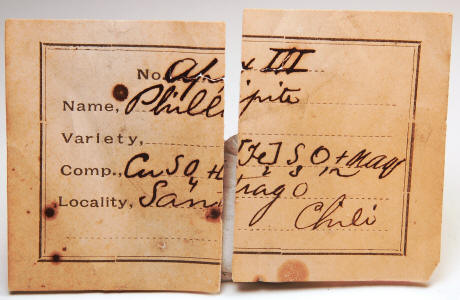 No. Appx III
Name, Phillipite
Variety,
Comp., CuSO4 + [Fe]2 S3 O12 + naq
Locality, Santiago
Chili